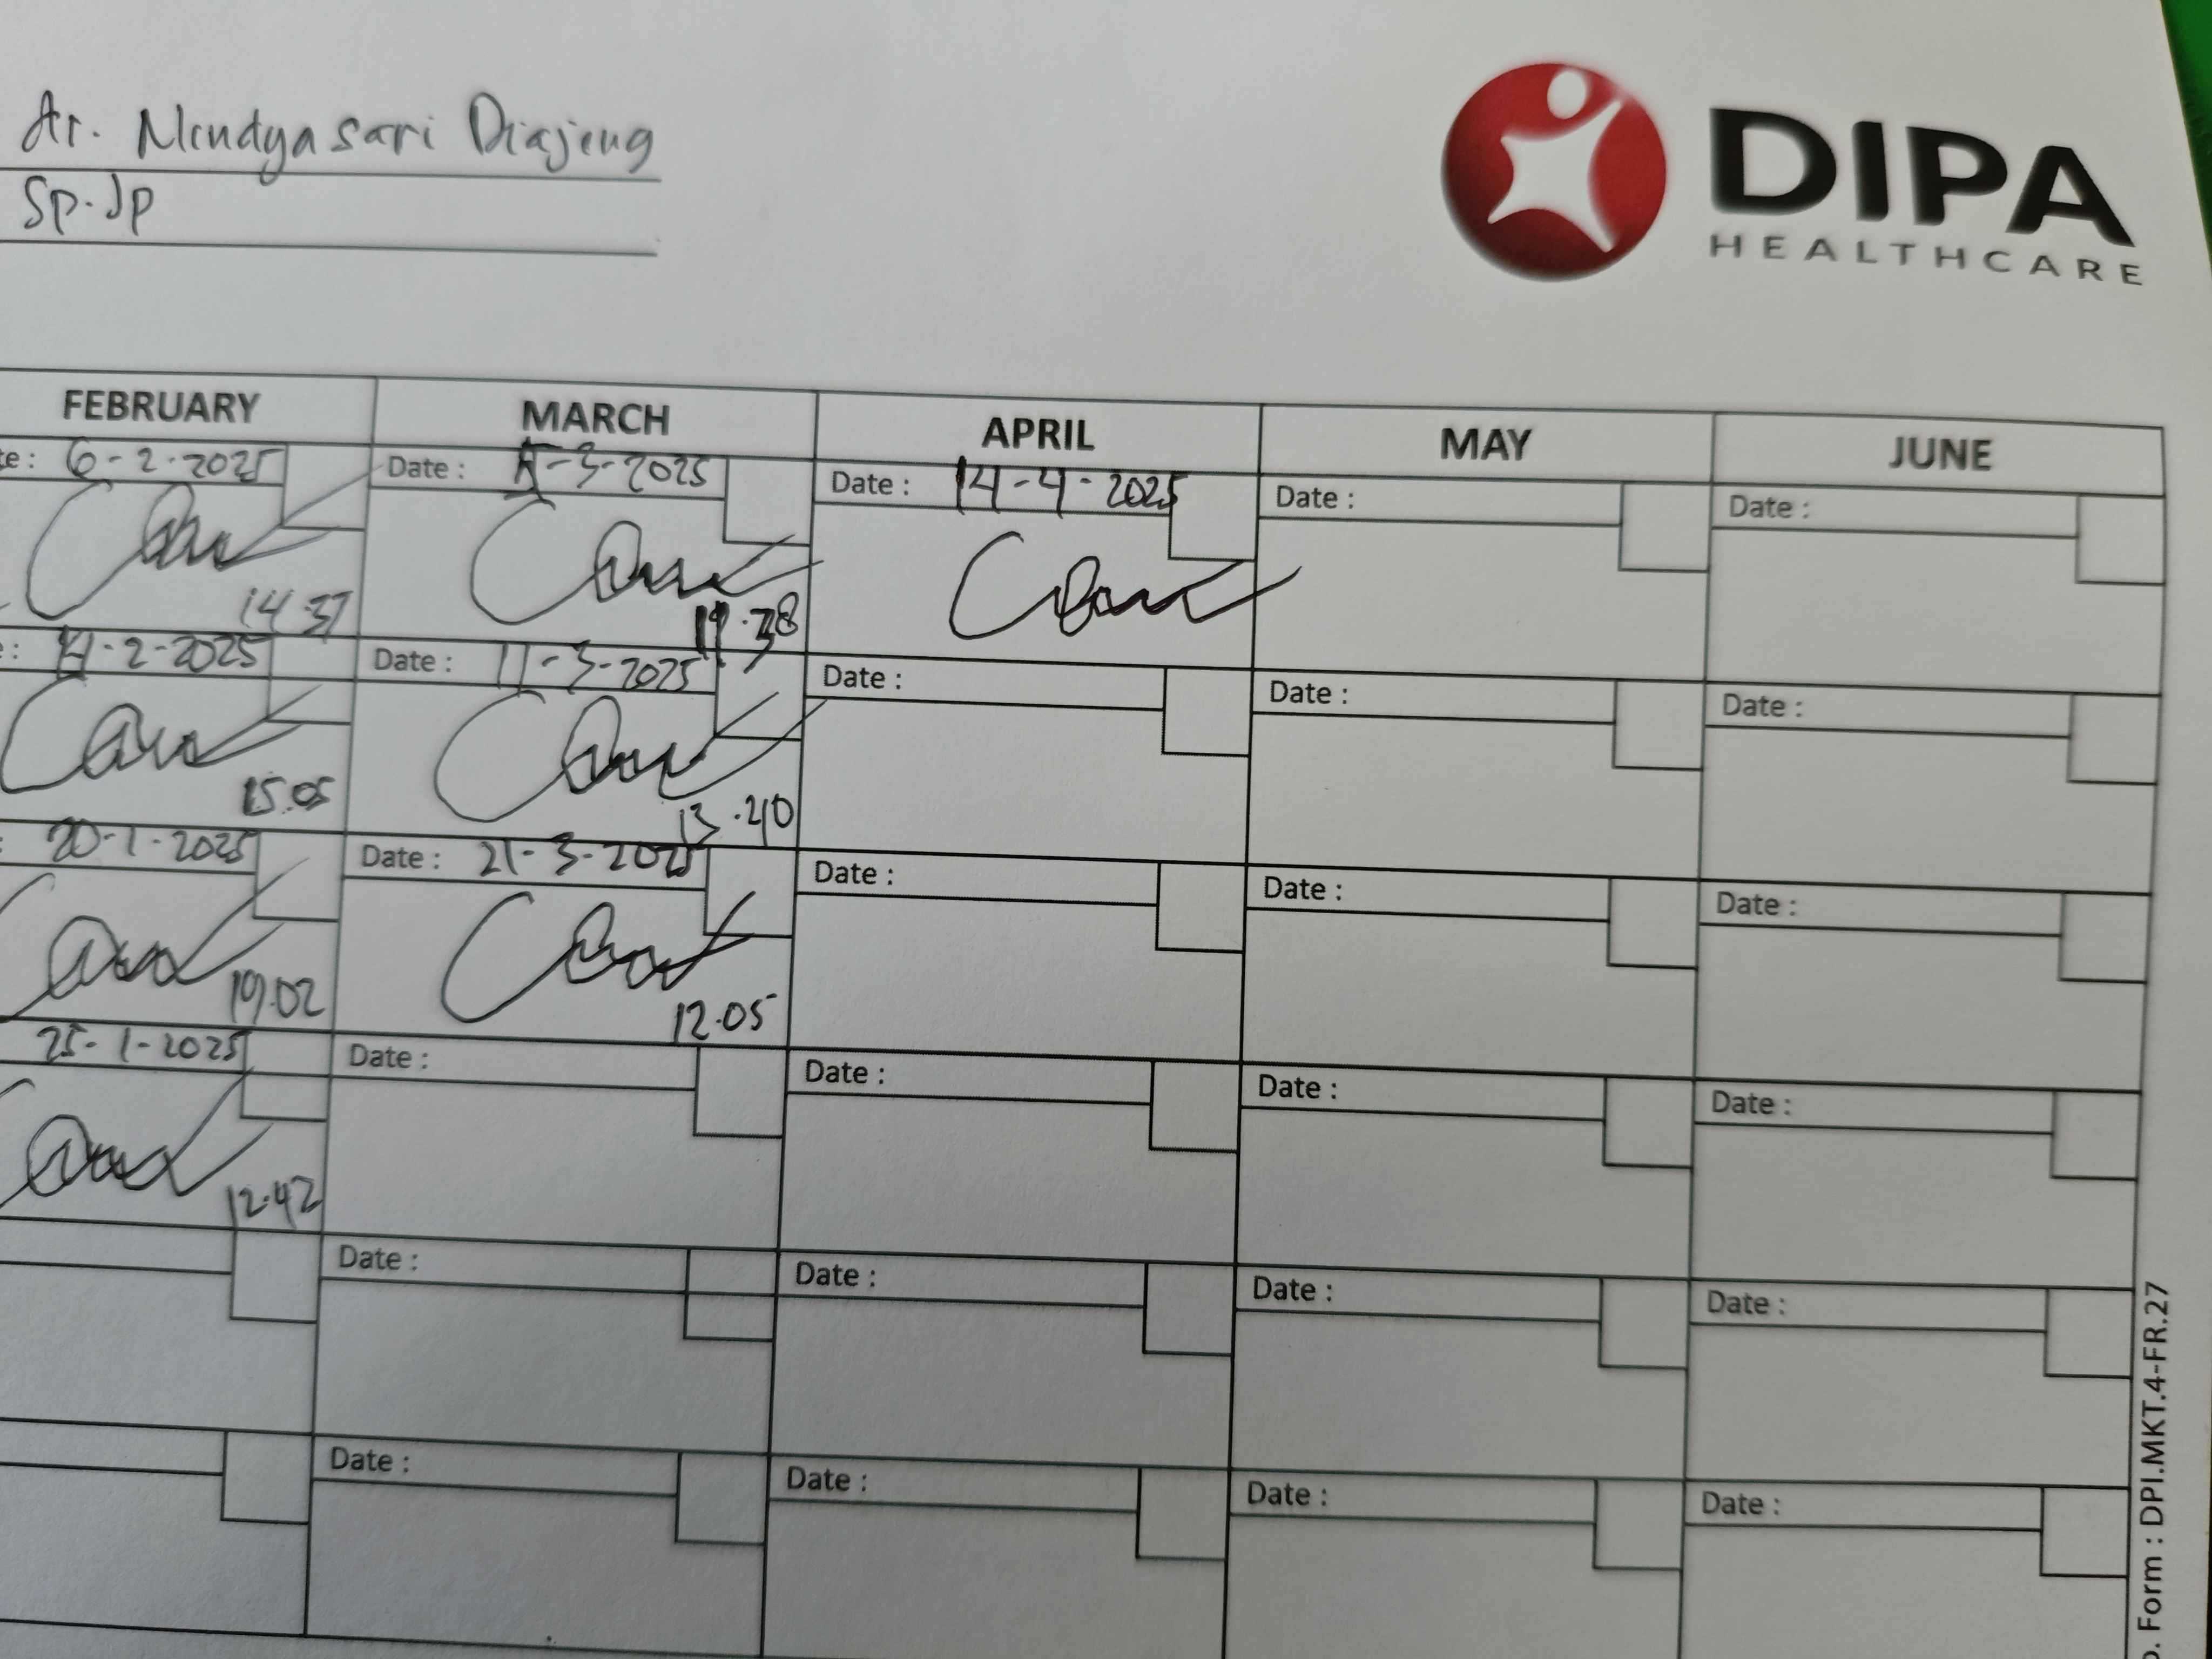 dr. Nindyasari Diajeng
Sp.Jp
DIPA
HEALTHCARE
FEBRUARY MARCH APRIL MAY JUNE
te: 6-2-2025 Date : -3-2025 Date : 14-4-2025 Date : Date :
14.37
: -2-2025 Date : 11-3-2025 Date : Date : Date :
15.05 13.40
: 20-1-2025 Date : 21-3-2025 Date : Date : Date :
19.02 12.05
25-1-2025 Date : Date : Date : Date :
12.42
Date : Date : Date : Date :
Date : Date : Date : Date :
o. Form : DPI.MKT.4-FR.27